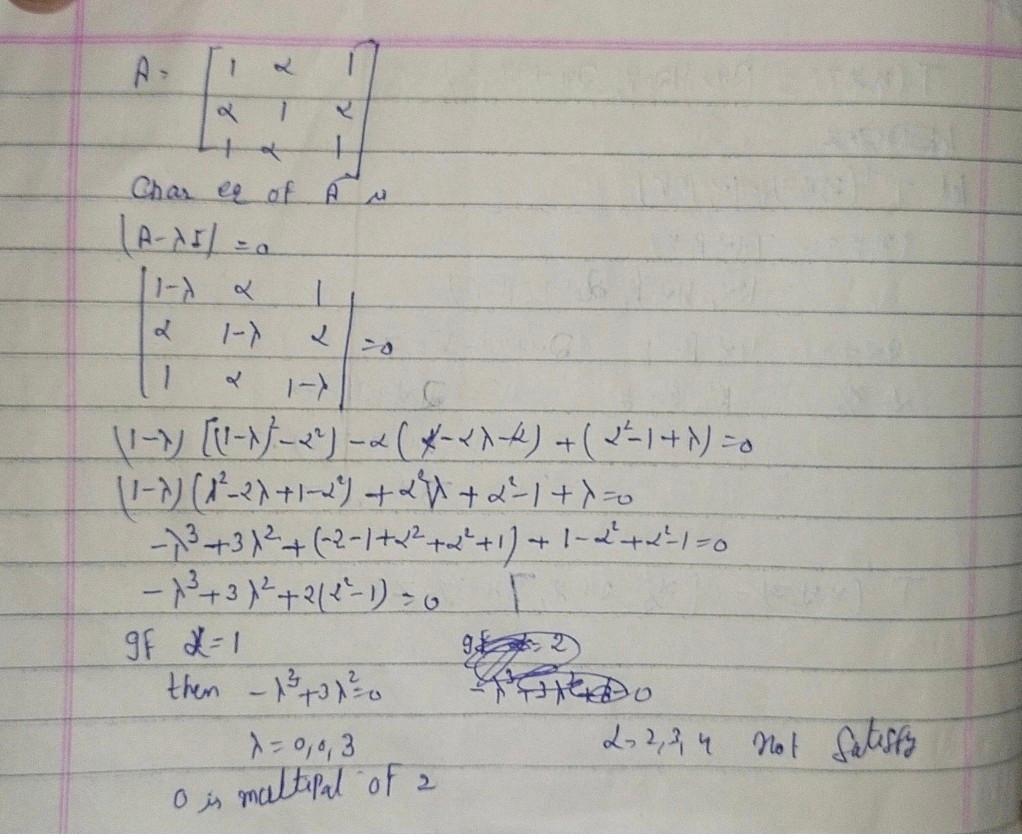 A = [1 α 1
α 1 α
1 α 1]
Char eq of A is
|A-λI| = 0
|1-λ α 1
α 1-λ α
1 α 1-λ| = 0
(1-λ) [(1-λ)²-α²) - α (α-αλ-α) + (α²-1+λ) = 0
(1-λ) (λ²-2λ+1-α²) + α²λ + α²-1+λ = 0
-λ³+3λ²+(-2-1+α²+α²+1) + 1-α²+α²-1 = 0
-λ³+3λ²+2(α²-1) = 0
If α = 1
then -λ³+3λ² = 0
λ = 0,0,3
α = 2,3,4 not satisfy
0 is multipal of 2